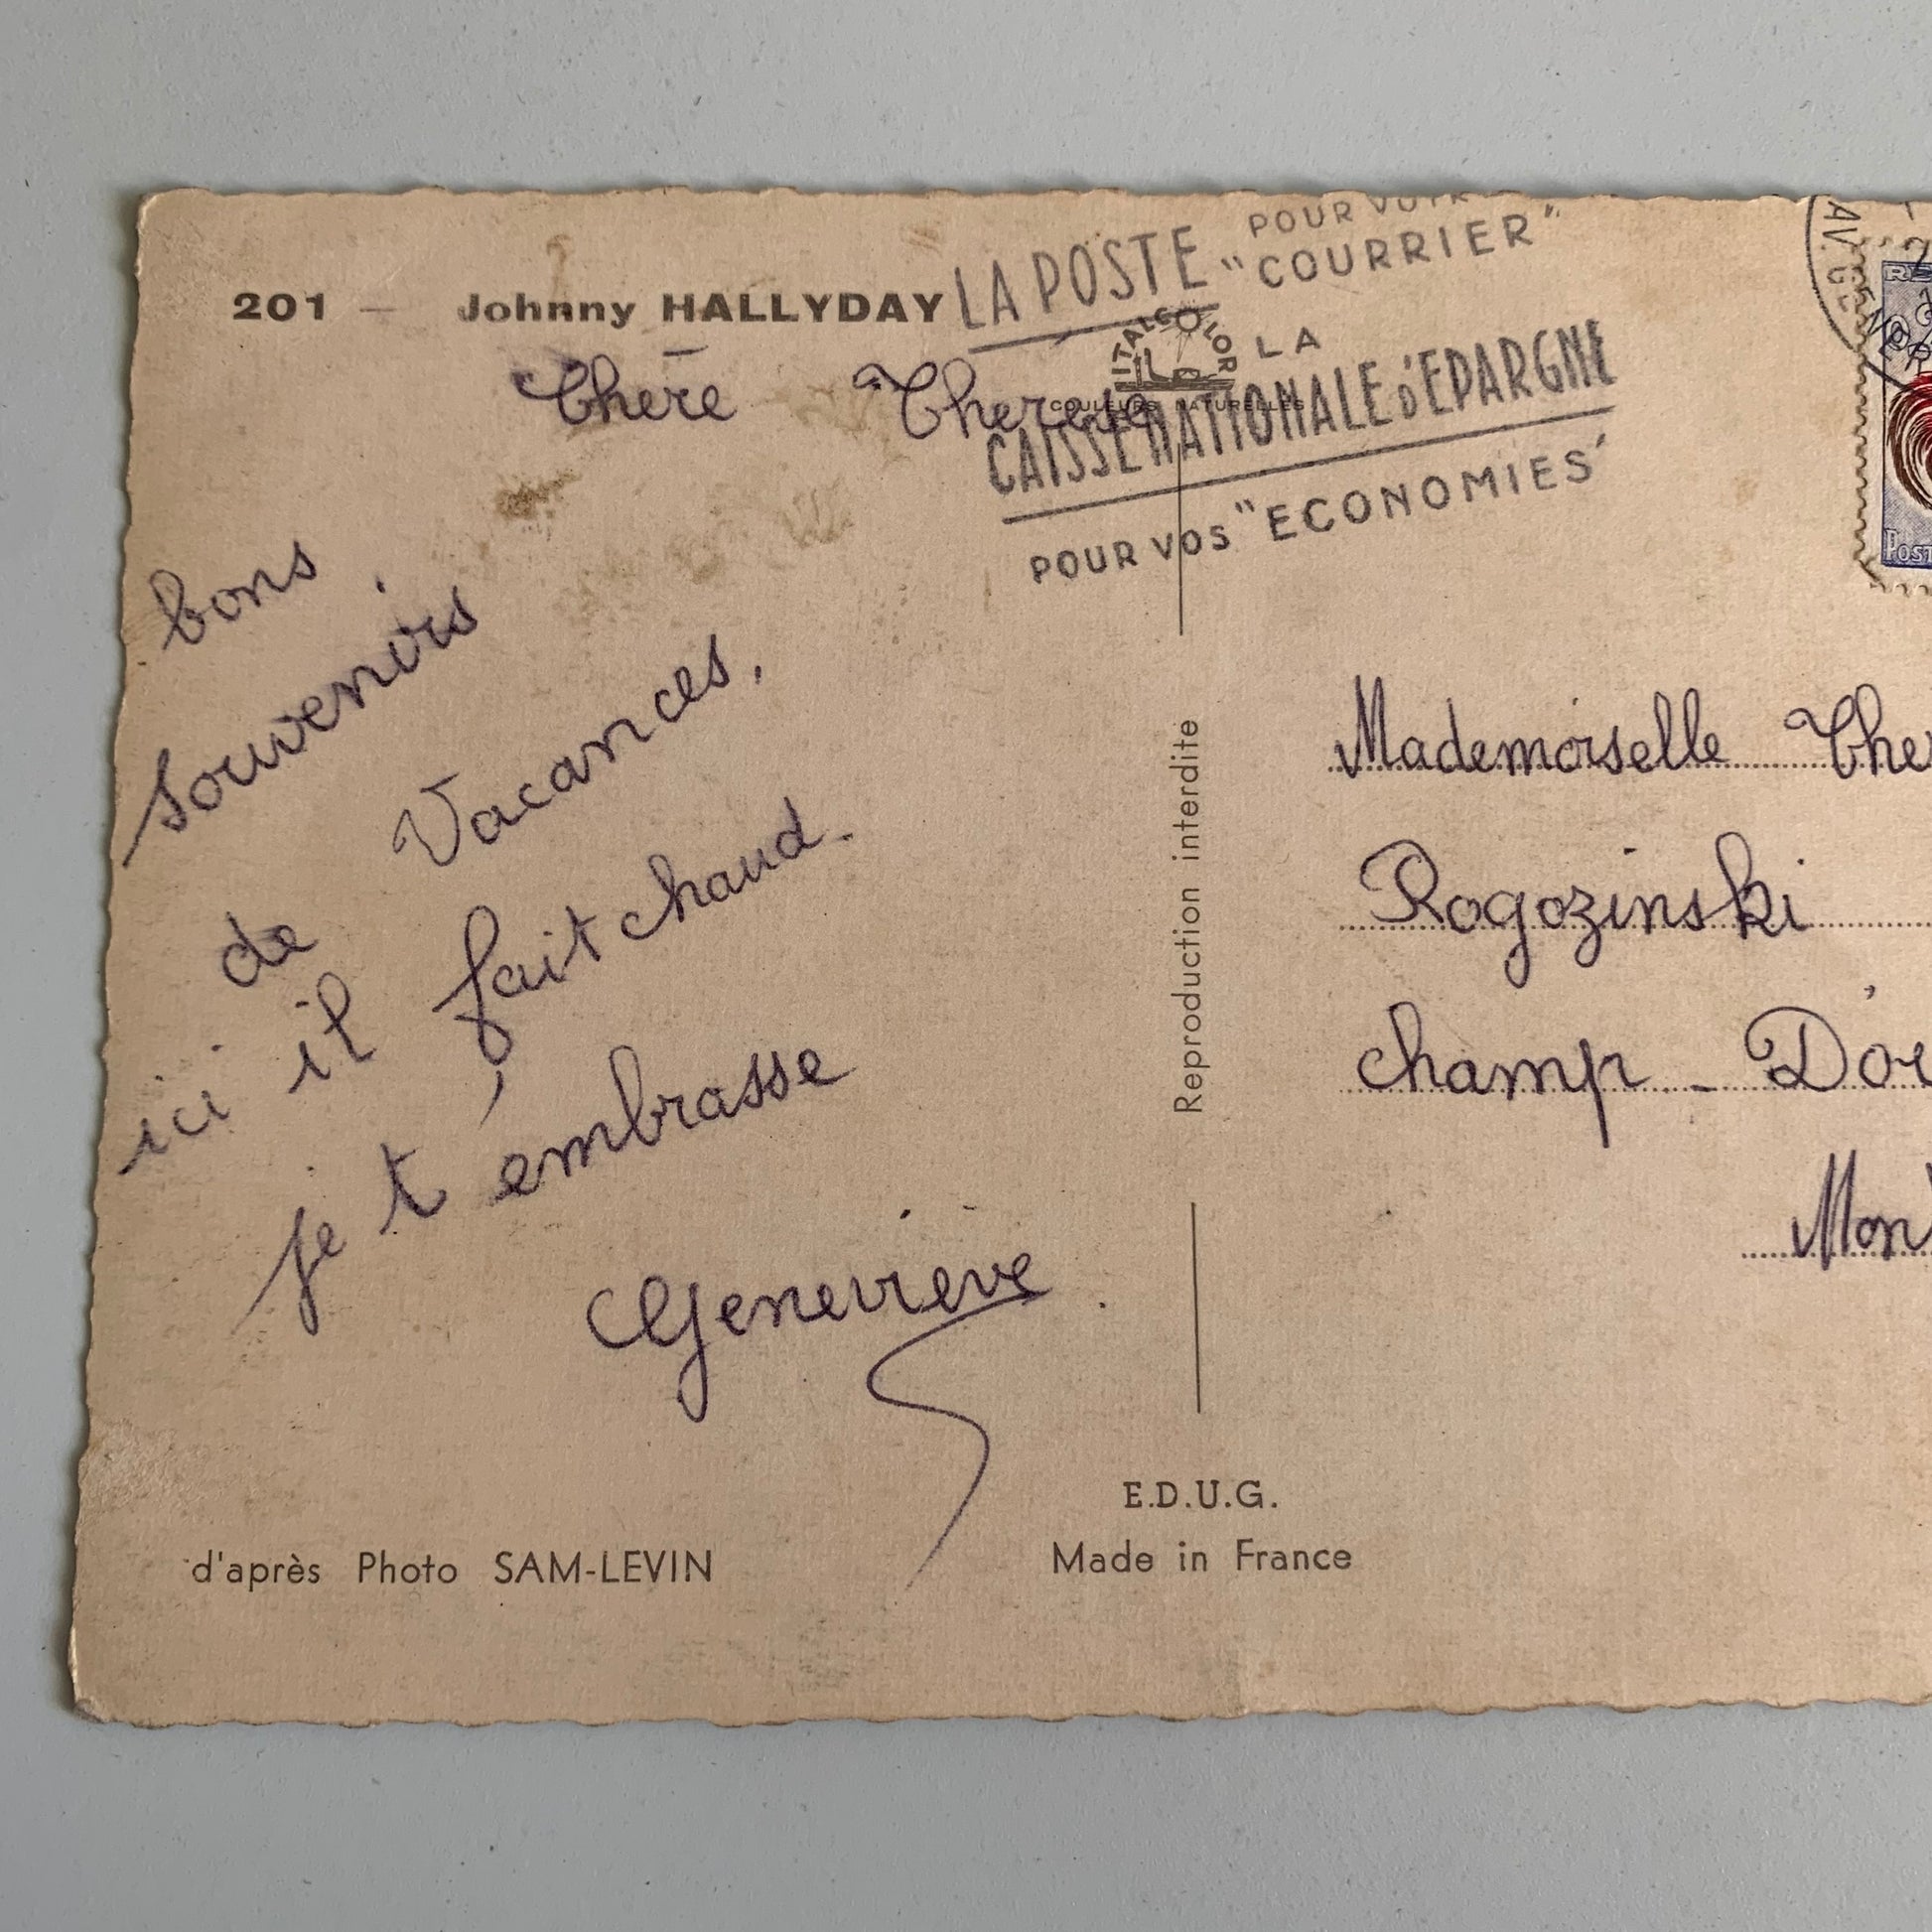 201 — Johnny HALLYDAY
Chere Therese
bons
souvenirs
de Vacances.
ici il fait chaud.
je t'embrasse
Genevieve.
d'après Photo SAM-LEVIN
LA POSTE POUR VOTRE "COURRIER"
ITALCOLOR
COULEURS NATURELLES
LA
CAISSE NATIONALE d'EPARGNE
POUR VOS "ECONOMIES"
Reproduction interdite
E.D.U.G.
Made in France
AV. G
RE
POST
Mademoiselle The
Rogozinski
champ - D'or
Mon